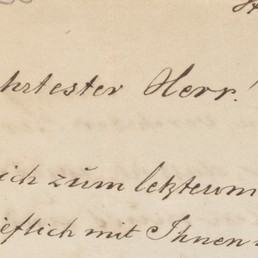 hrtester Herr!
ich zum letztenm
ieflich mit Ihnen